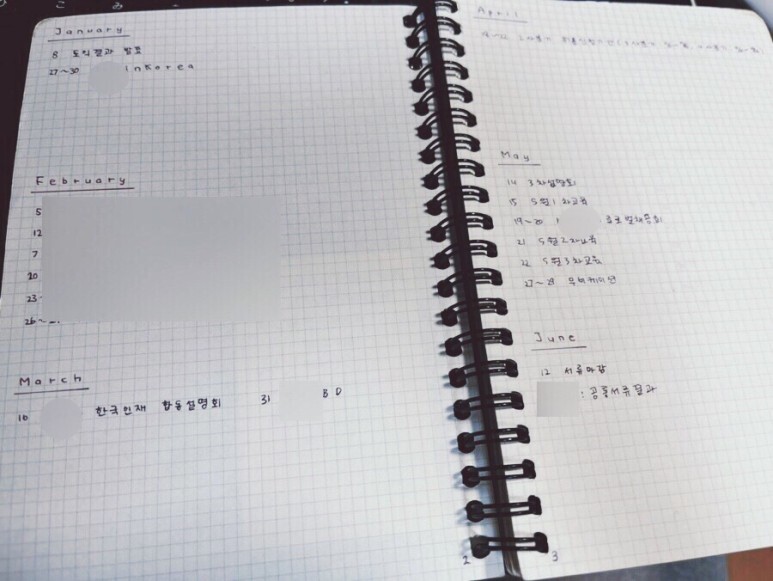 January
8 토익결과 발표
27~30 in Korea
February
5
12
7
20
23
26~
March
16 한국인재 합동설명회 31 BD
April
May
14 3차설명회
15 5월1차교육
19~20
21 5월2차교육
22 5월3차교육
27~29 워케이션
June
12 서류마감
: 공통서류결과
2
3